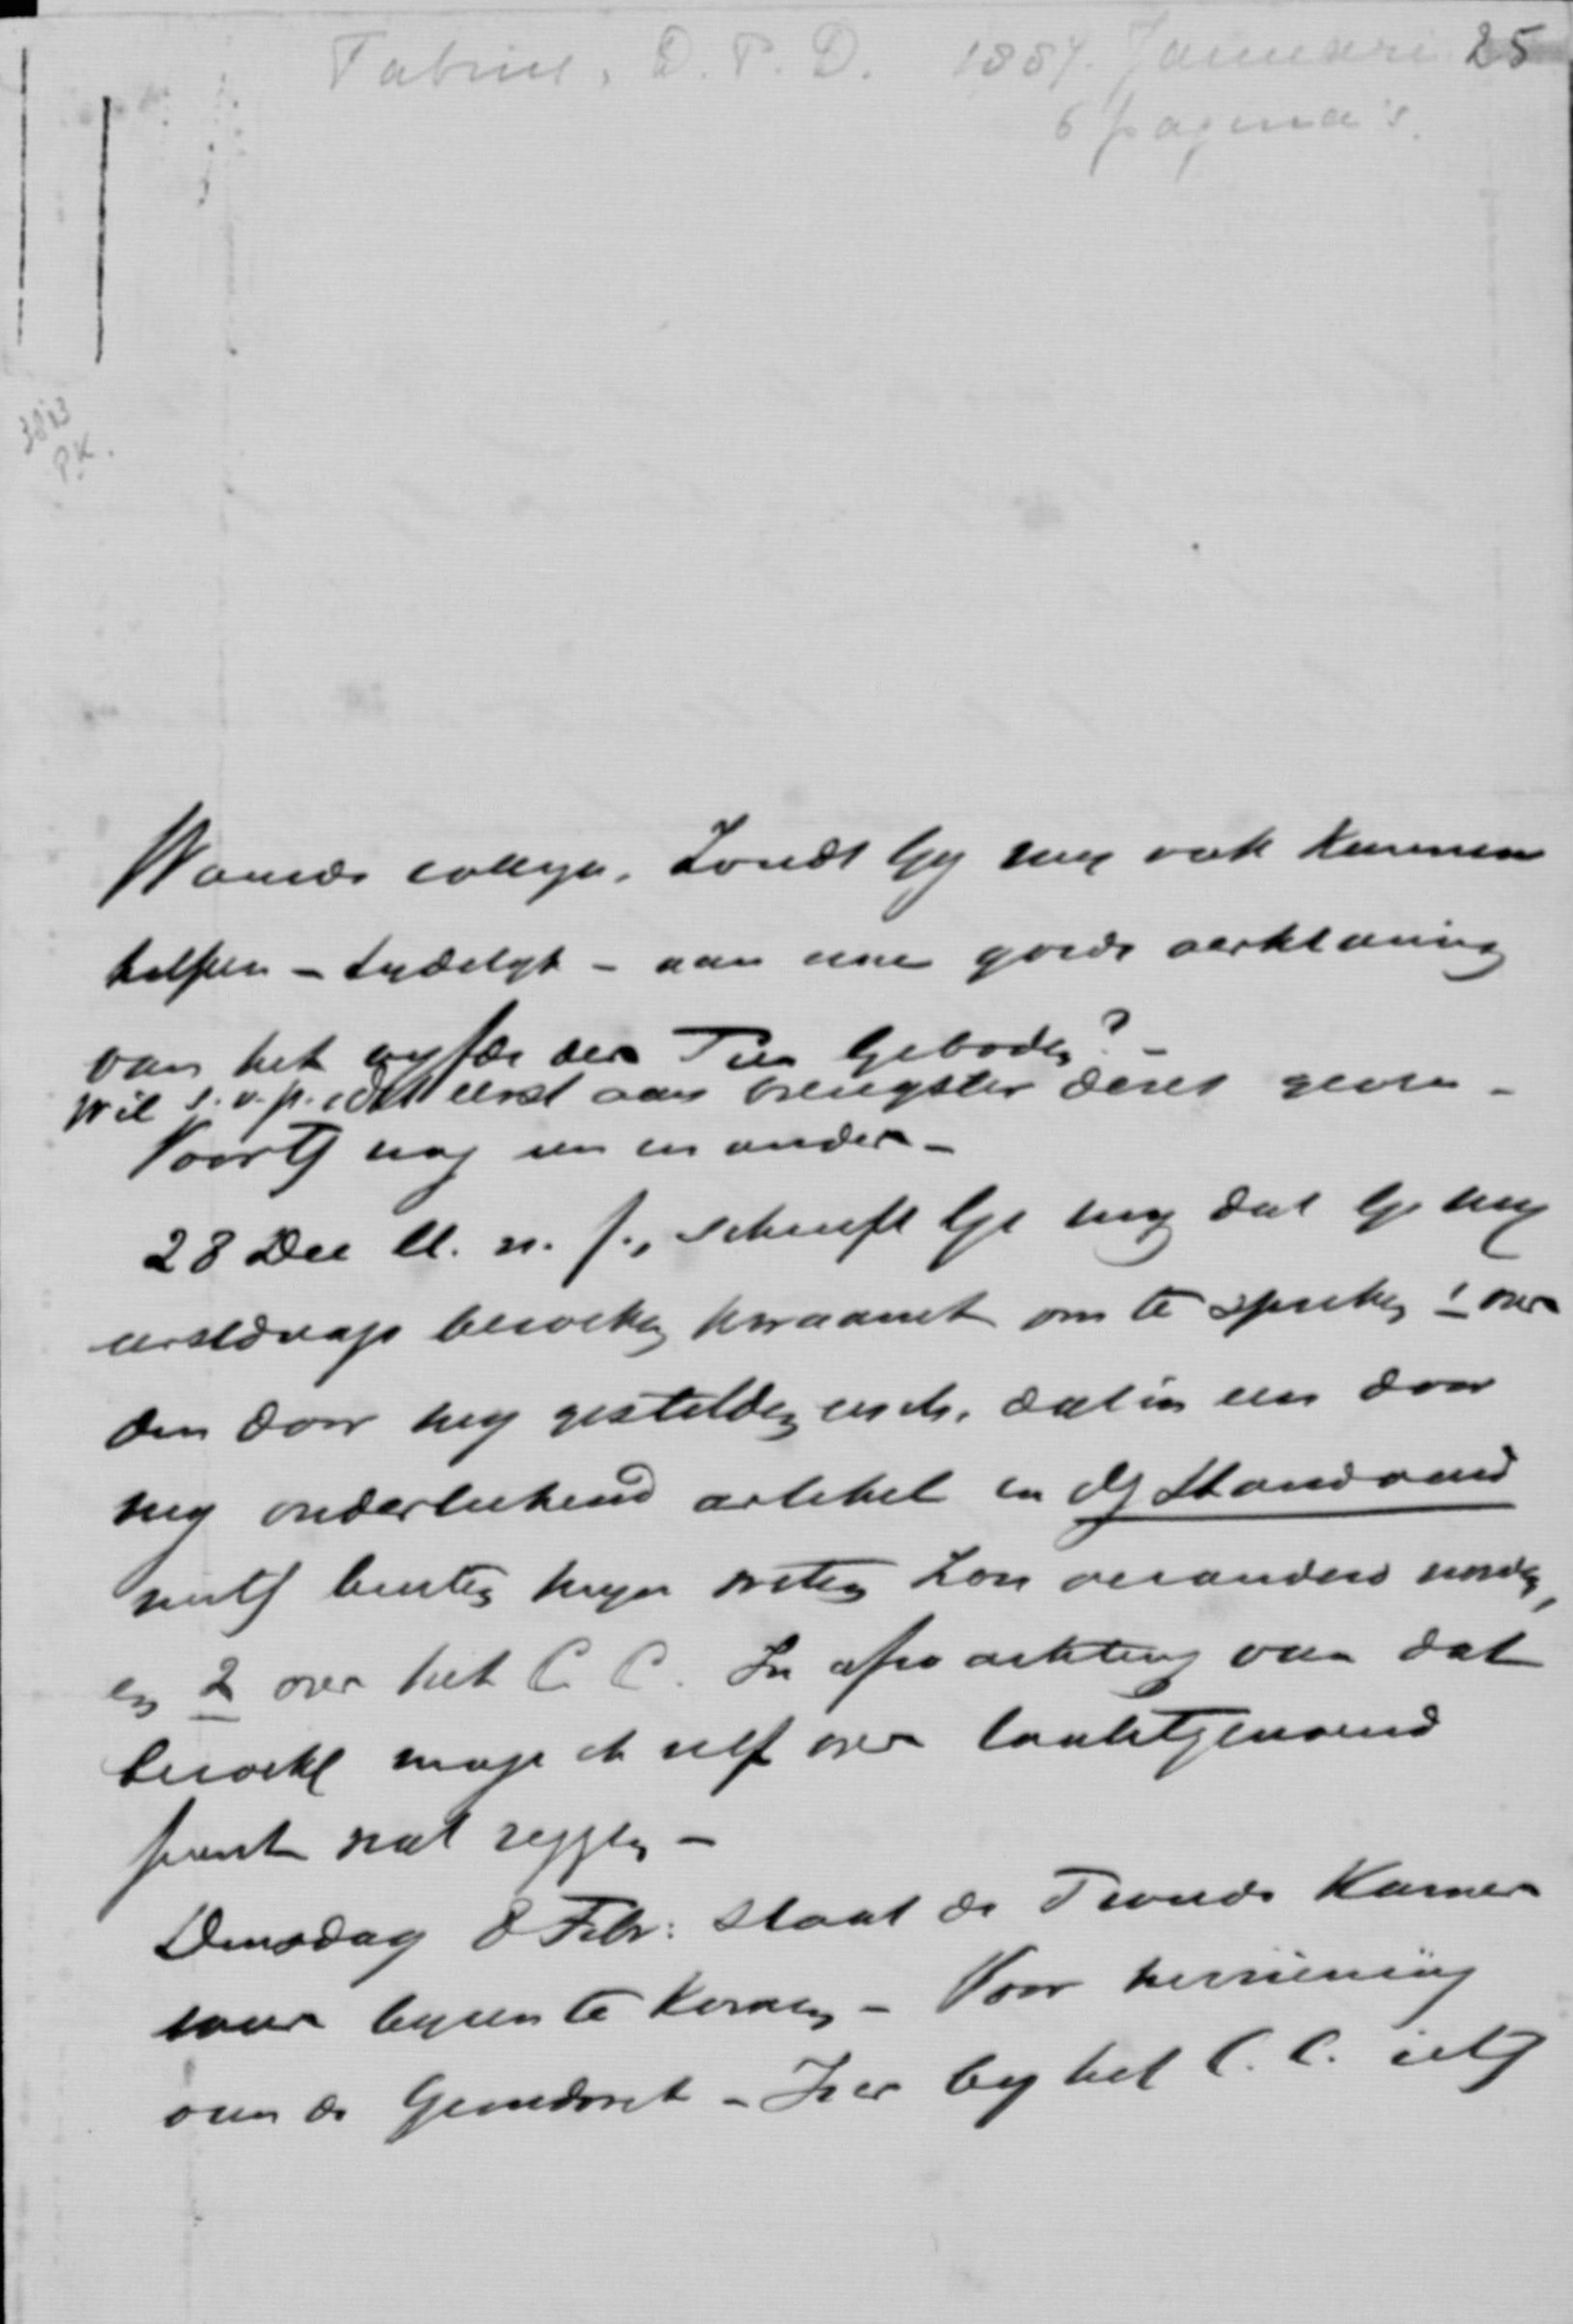 Fabius, D.P.D. 1887. Januari 25
6 pagina's.
3813
P.K.
Waarde collega, Zoudt Gij mij ook kunnen
helpen – tijdelijk – aan eene goede verklaring
van het vijfde der Tien Geboden? –
Wil s.v.p. dit eerst aan brengster dezes geven –
Voorts nog een en ander –
28 Dec ll. n. f., schreeft Ge mij dat Ge mij
eerstdaags bezoeken kwaamt om te spreken 1 over
den door mij gestelden eisch, dat in een door
mij onderteekend artikel in de Standaard
niets buiten mijn weten zou veranderd worden,
en 2 over het C.C. In afwachting van dat
bezoek mag ik zelf over laatstgenoemd
punt wat zeggen –
Dinsdag 8 Febr: staat de Tweede Kamer
weer bijeen te komen – Voor herziening
van de Grondwet – Zou bij het C.C. iets